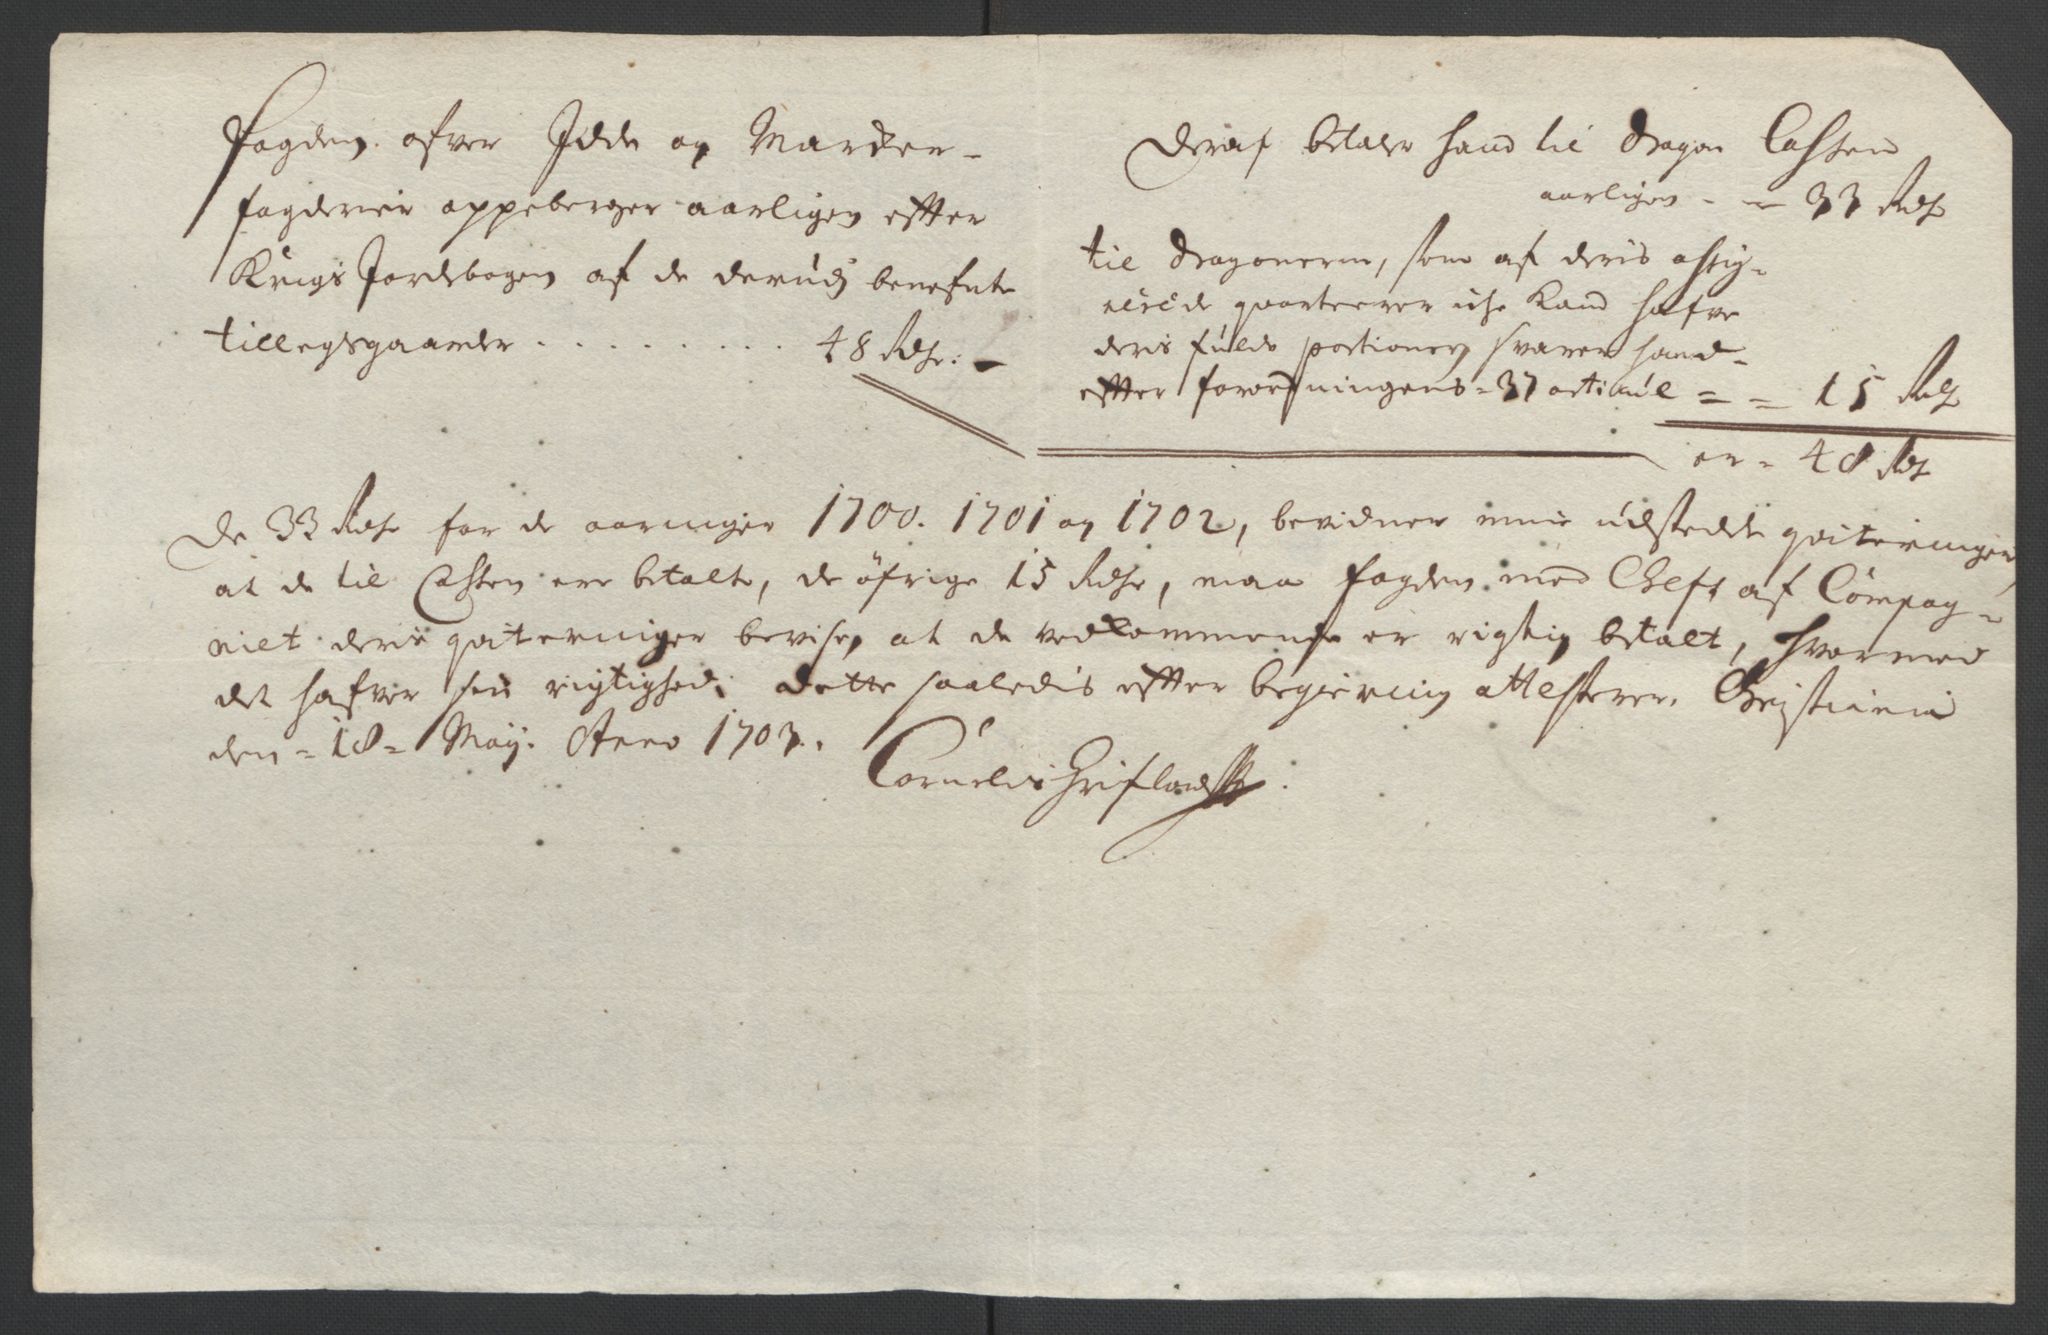 Fogden ofver Idde og Marcker-
fogderier oppeberger aarligen effter
Krigs Jordebogen af de derudj benefnte
tillegsgaarder . . . . . . . . . 48 Rdr. -
Deraf betaler hand til Dragon Cassen
aarligen - - 33 Rdr
til Dragonerne, som af deris assig-
nerede qvarteerer iche Kand hafve
deris fulde portioner svarer hand
effter forordningens 37 articul = = 15 Rdr
er = 48 Rdr
De 33 Rdr for de aaringer 1700. 1701 og 1702, bevidner mine udstedde qviteringer,
at de til Cassen ere betalte, de øfrige 15 Rdr, maa fogden med Chefs af Compag-
niet deris qviteringer bevise, at de vedkommende er rigtig betalt, hvormed
det hafver sin rigtighed; Dette saaledis effter begiering attesterer. Christiania
den = 18 = Maij. Anno 1703.
Cornelis